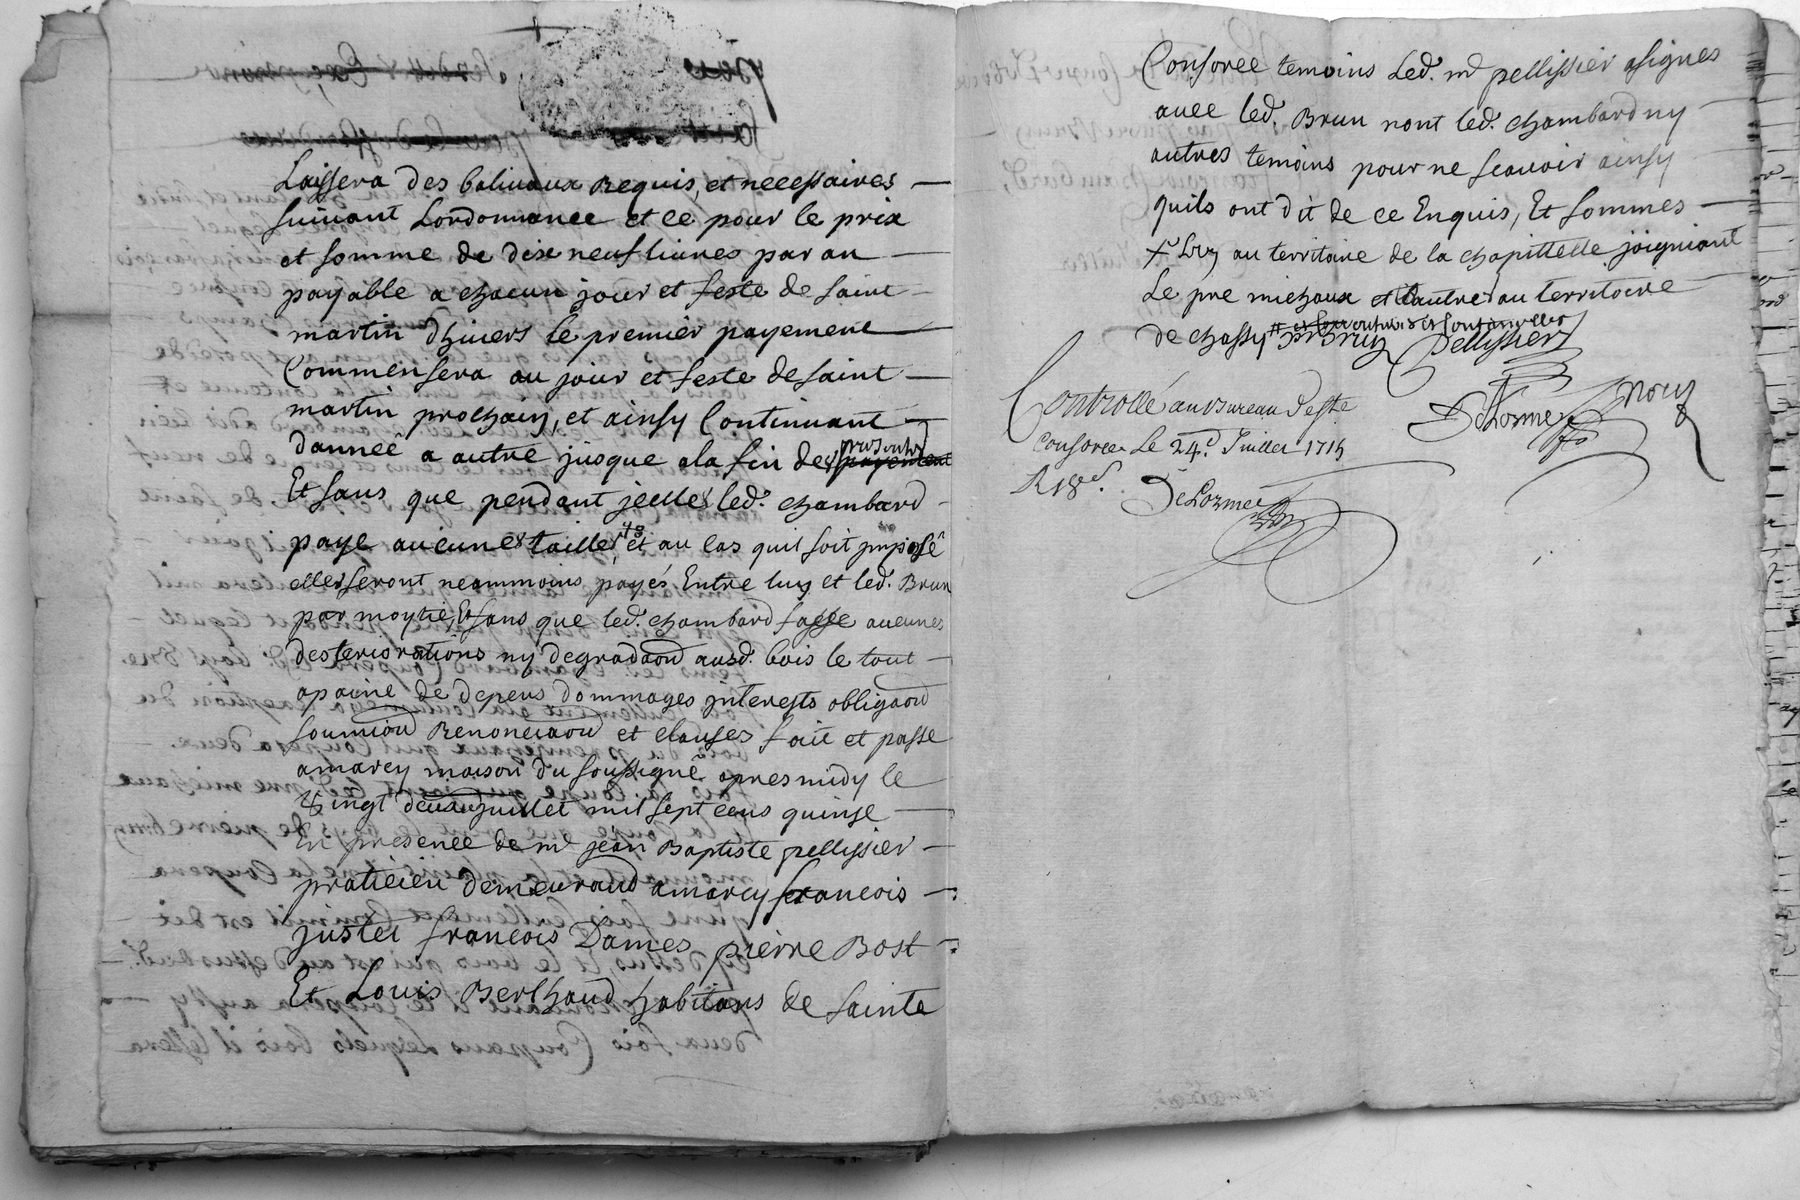 Laissera des balivaux Requis, et necessaires
suivant Lordonnance et ce pour le prix
et somme de dixe neuf livres par an
payable a chacun jour et feste de saint
martin dhivers le premier payement
Commensera au jour et feste de saint
martin prochain, et ainsy Continuant
dannéé a autre jusque ala fin des
Et sans que pendant jcelles led. chambard
paye aucunes tailles, et au cas quil soit jmposé
elles seront neammoins payés Entre luy et led. Brun
par moytié, Et sans que led. chambard fasse aucunes
desteriorations ny degradaon ausd. bois le tout
apaine de depens dommages jnterests obligaon
soumion Renonciaon et clauses fait et passe
amarcy maison du soussigné apres midy le
vingt deuxe juillet mil sept cens quinse
En presence de md jean Baptiste pellissier
praticien demeurand amarcy francois
juster francois Dames pierre Bost
Et Louis Berthaud habitans de sainte
Consorce temoins Led. md pellissier asignes
avec led. Brun nont led. chambard ny
autres temoins pour ne scavoir ainsy
quils ont dit de ce Enquis, Et sommes
au territoire de la chapittelle joigniant
Le pre michaux et lautre au territoire
de chassy Brun Pellissier
DeLorme
Controllé au Bureau deste
Consorce Le 24.e Juillet 1715
R 18 d.
DeLorme